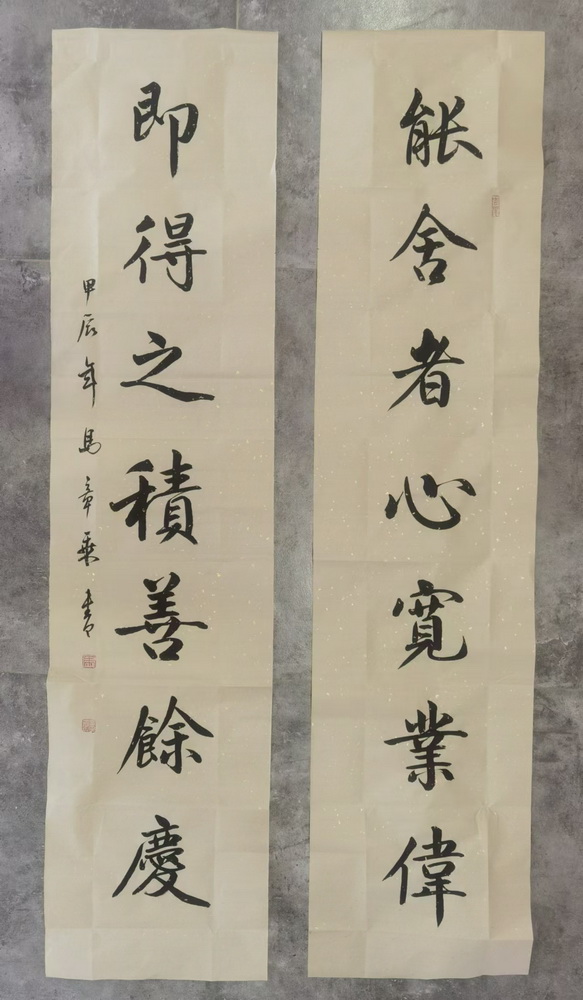 能舍者心寬業偉
即得之積善餘慶
甲辰年馬章乘書